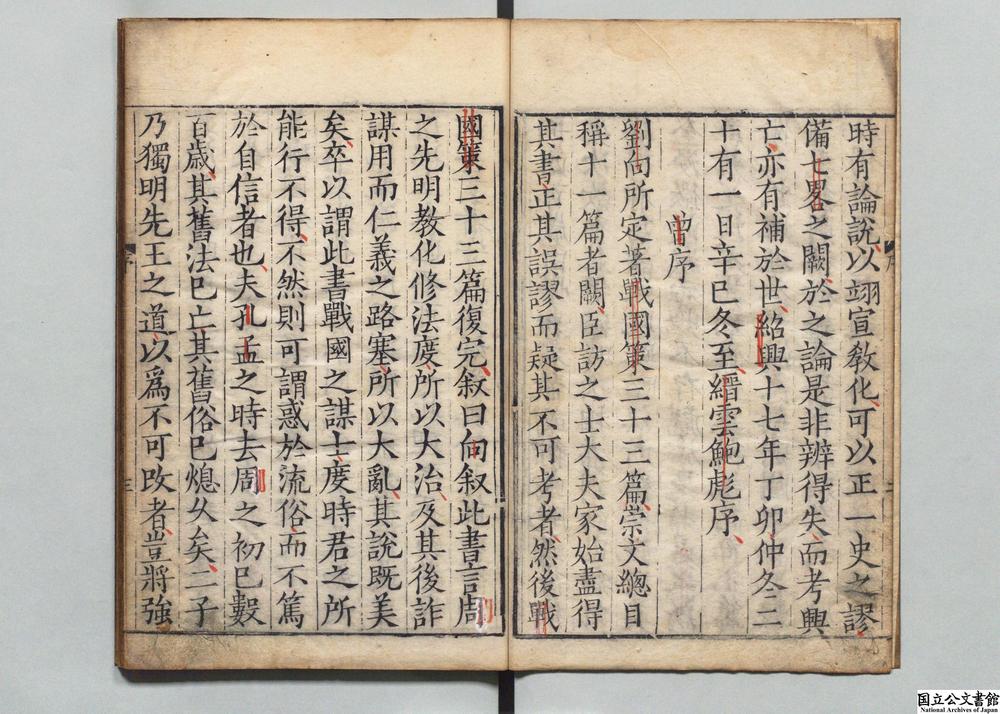 時有論說以翊宣敎化可以正一史之謬
備七畧之闕於之論是非辨得失而考興
亡亦有補於世紹興十七年丁卯仲冬二
十有一日辛巳冬至縉雲鮑彪序
曾序
劉向所定著戰國策三十三篇崇文總目
稱十一篇者闕臣訪之士大夫家始盡得
其書正其誤謬而疑其不可考者然後戰
國策三十三篇復完叙曰向叙此書言周
之先明敎化修法度所以大治及其後詐
謀用而仁義之路塞所以大亂其說既美
矣卒以謂此書戰國之謀士度時君之所
能行不得不然則可謂惑於流俗而不篤
於自信者也夫孔孟之時去周之初巳數
百歲其舊法巳亡其舊俗巳熄乆矣二子
乃獨明先王之道以爲不可改者豈將強
序
三
国立公文書館
National Archives of Japan